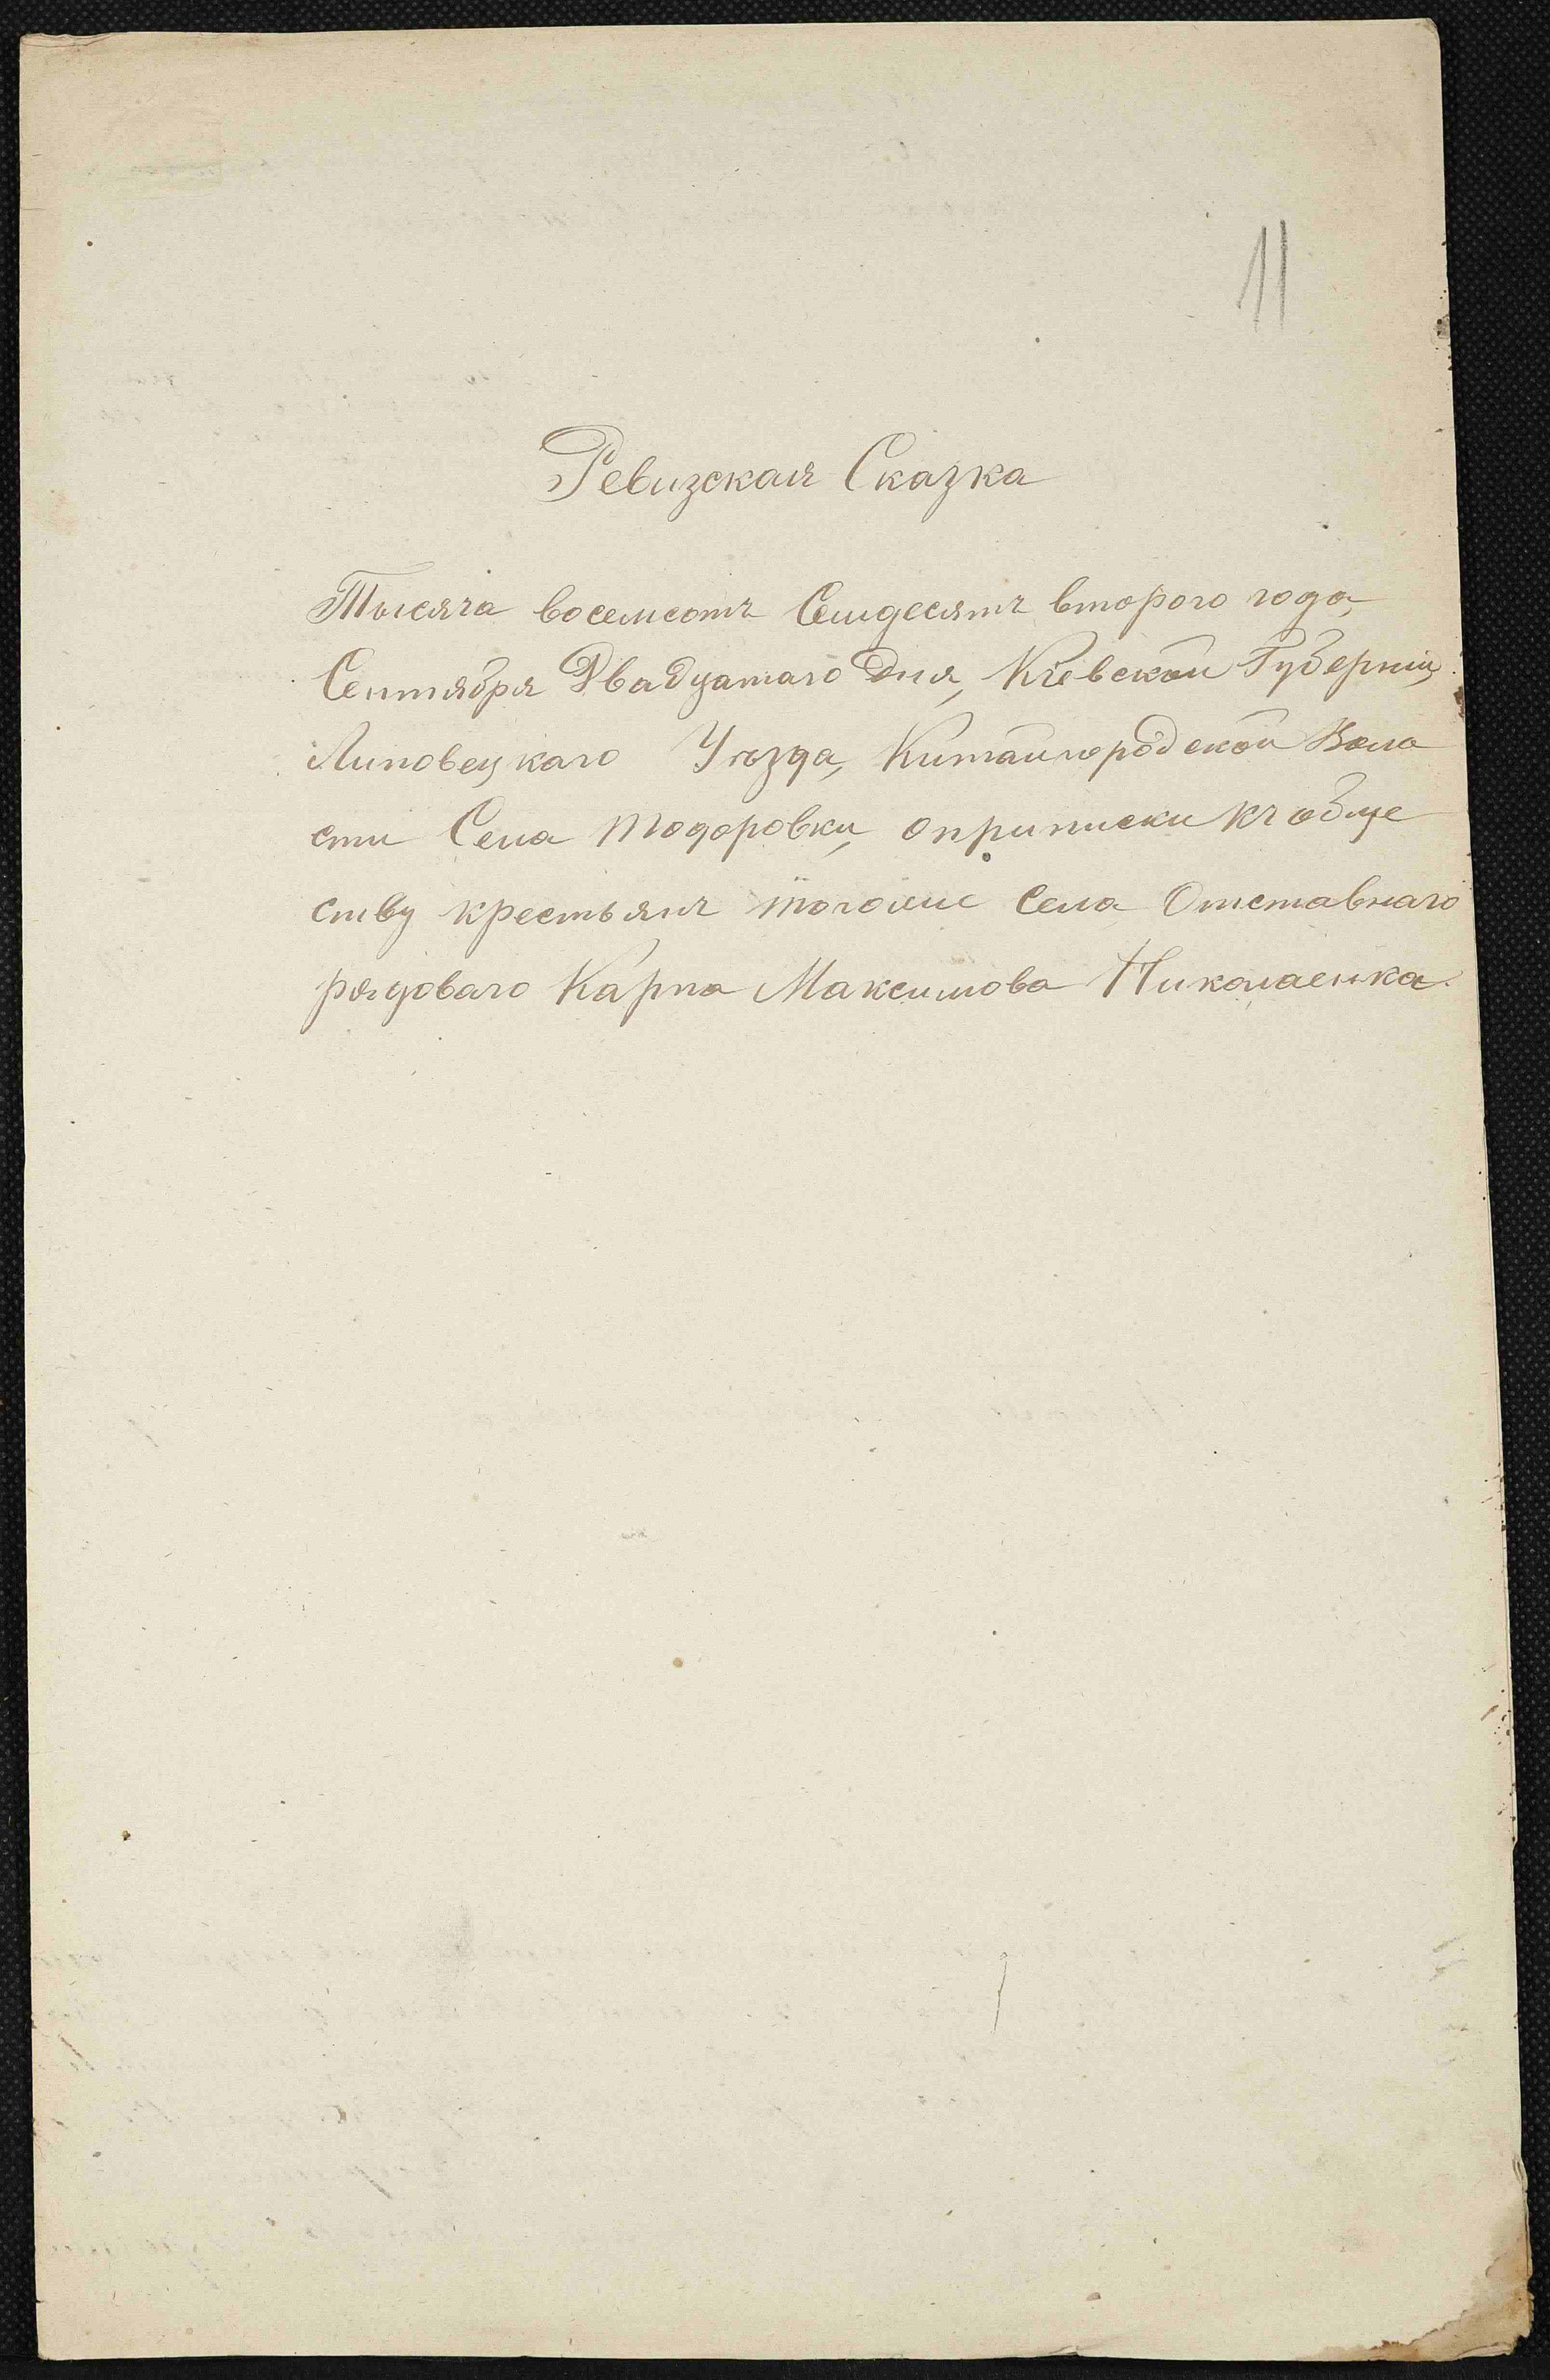 11
Ревизская Сказка
Тысяча восемсотъ Семдесятъ втораго года,
Сентября Двадцатаго дня, Кіевской Губерніи,
Липовецкаго Уѣзда, Китайгородской Воло
сти Села Тодоровки, о приписки къ обще
ству крестьянъ тогоже Села Отставнаго
рядоваго Карпа Максимова Николаенка.